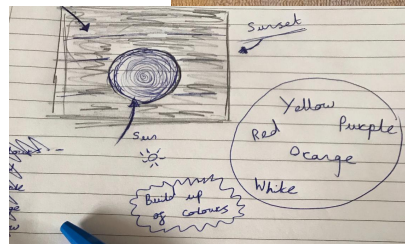 Sunset
Yellow
Red Purple
Orange
White
Sun
Build up
of colours